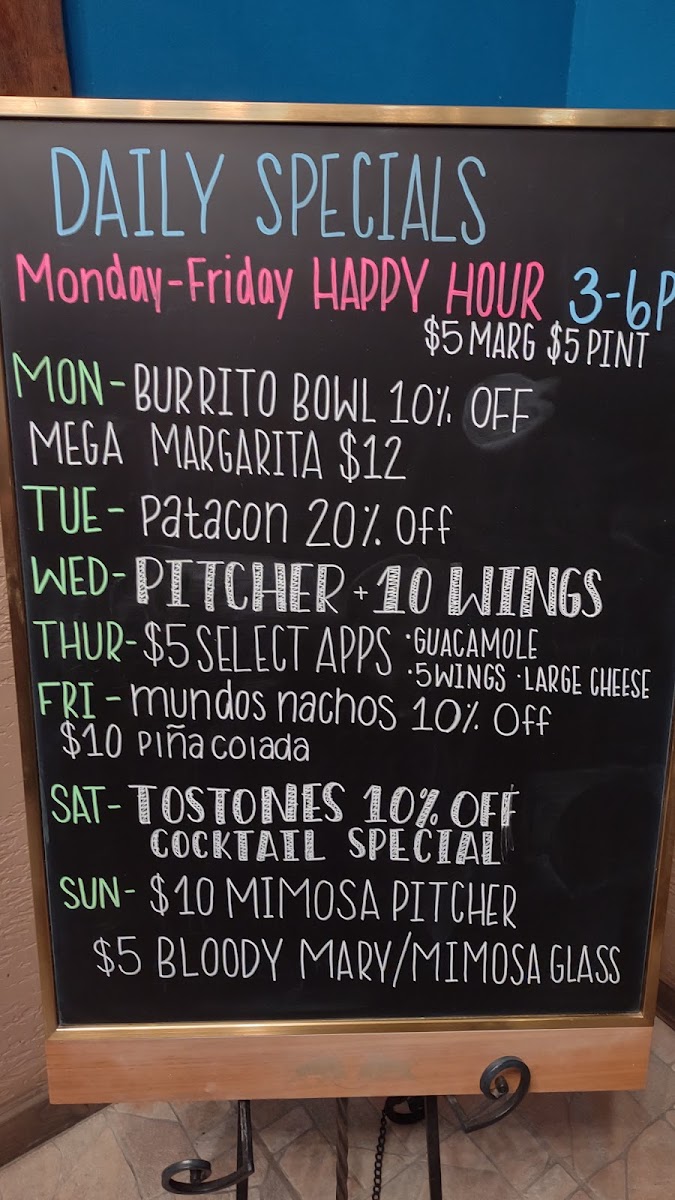 DAILY SPECIALS
Monday-Friday HAPPY HOUR 3-6P
$5 MARG $5 PINT
MON- BURRITO BOWL 10% OFF
MEGA MARGARITA $12
TUE- Patacon 20% Off
WED- PITCHER + 10 WINGS
THUR- $5 SELECT APPS ·GUACAMOLE
·5 WINGS ·LARGE CHEESE
FRI - mundos nachos 10% Off
$10 Piña colada
SAT- TOSTONES 10% OFF
COCKTAIL SPECIAL
SUN- $10 MIMOSA PITCHER
$5 BLOODY MARY/MIMOSA GLASS